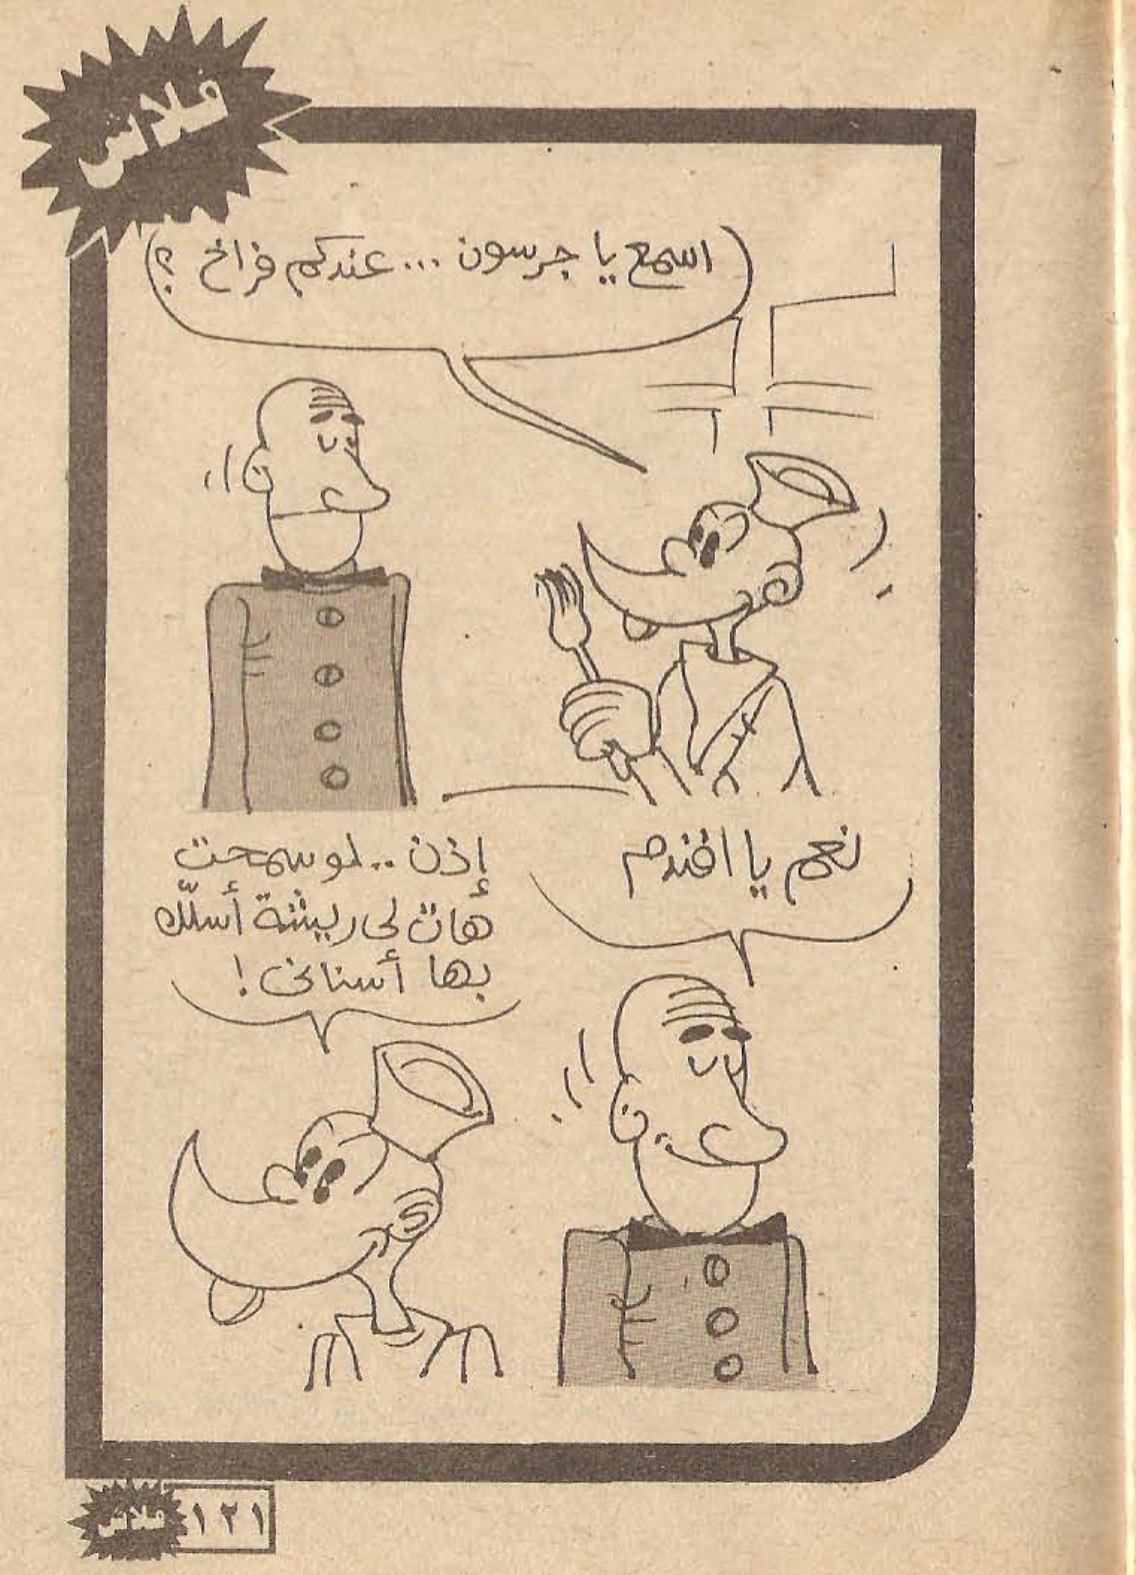 فلاش
اسمع يا جرسون ... عندكم فراخ ؟
نعم يا افندم
إذن .. لو سمحت
هات لى ريشة أسلّك
بها أسنانى !
فلاش ١٢١